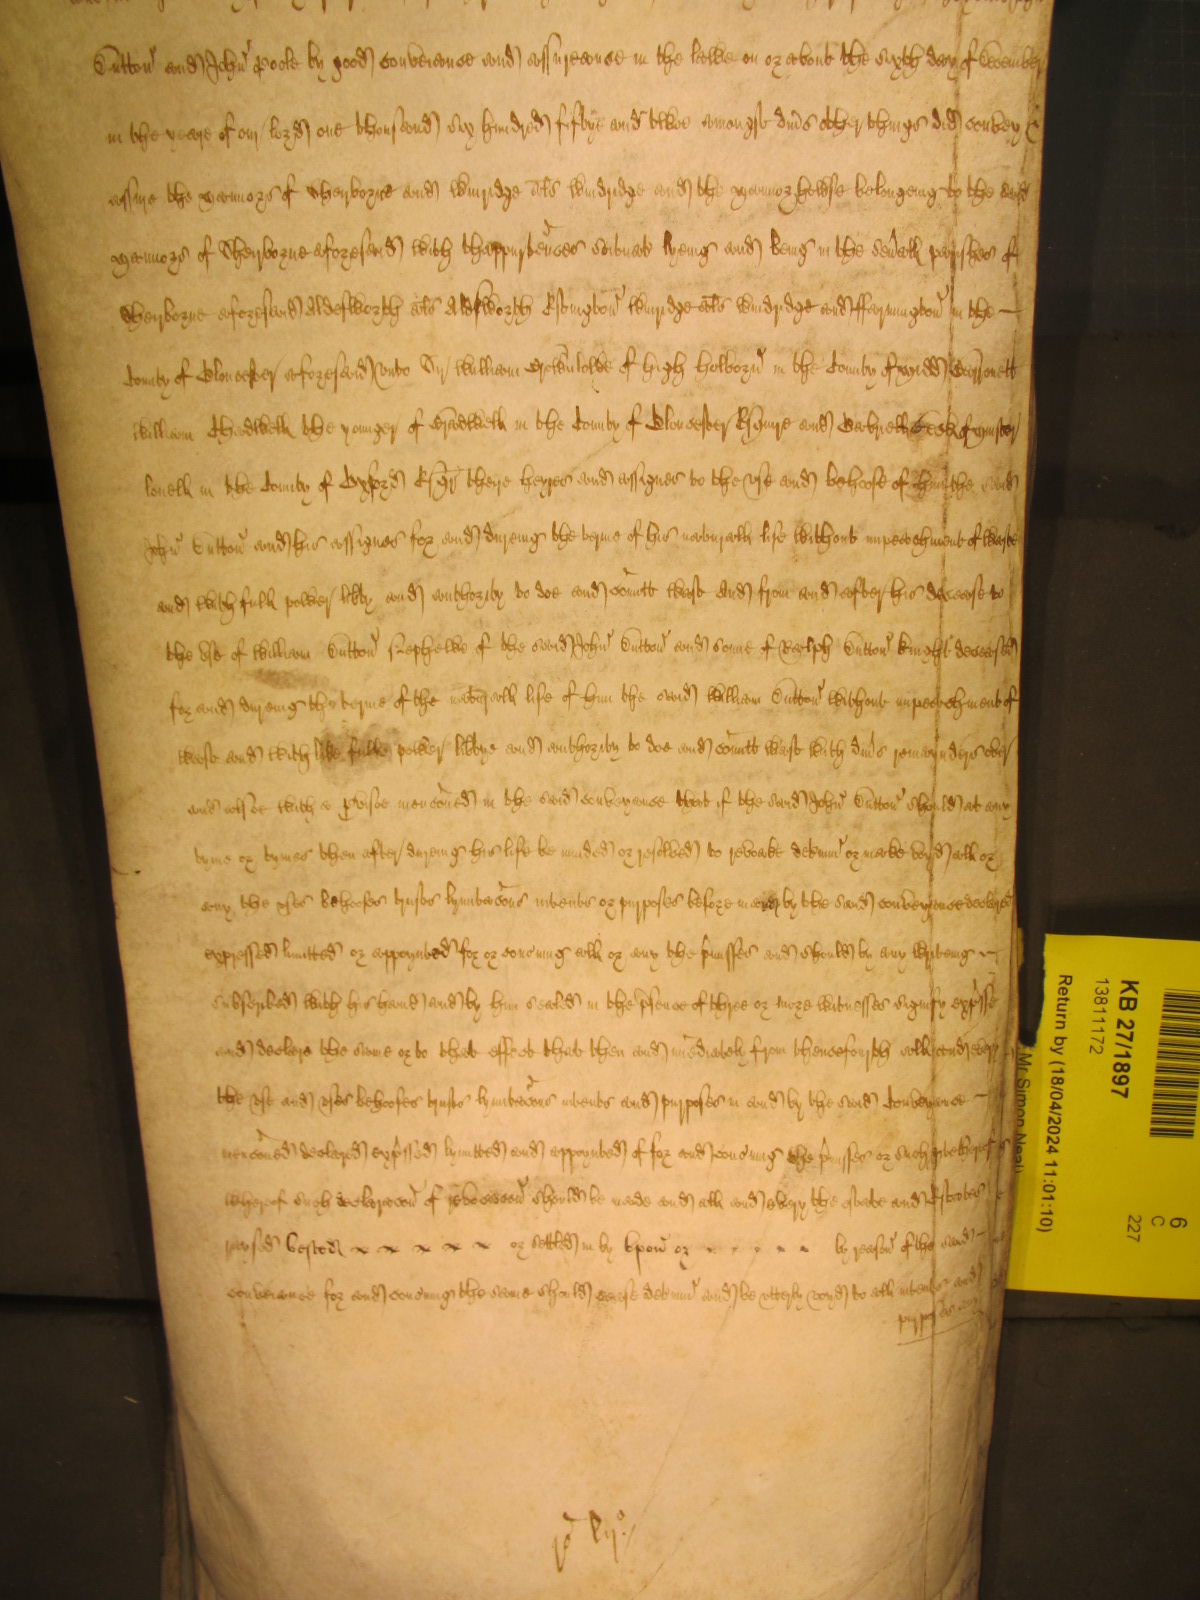 Dutton and John Poole by good conveiance and assureance in the lawe on or about the sixth day of December
in the yeare of our lord one thousand six hundred fiftye and twoe amongst div's other things did convey &
assure the mannors of Sherborne and Winridge als Windridge and the mannor howse belongeing to the said
mannors of Sherborne aforesaid with thappurten'ces scituat lyeing and being in the sev'all parishes of
Sherborne aforesaid Aldesworth als Alesworth Estington Winridge als Windridge and ffarmington in the
County of Gloucester aforesaid unto Sir William of high Holborn in the County of Midd Barronett
William Chadwell the younger of Broadwell in the County of Gloucester Esquire and of Minster
lovell in the County of Oxford Esqr theire heyres and assignes to the use and behoofe of him the said
John Dutton and his assignes for and dureing the terme of his naturall life without impeachment of waste
and with full power lib'ty and authority to doe and com'itt wast And from and after his decease to
the use of William Dutton Nephewe of the said John Dutton and sonne of Raelph Dutton knight deceased
for and dureing the terme of the naturall life of him the said William Dutton without impeachment of
wast and with like full power lib'tye and authority to doe and com'itt wast with div's remaynders over
and alsoe with a p'visoe menc'oned in the said conveyance that if the said John Dutton should at any
tyme or tymes then after dureing his life be minded or resolved to revoake determ' or make voyd all or
any the uses behoofes trusts lymitac'ons intents or purposes before menc'oned by the said conveyance declared
expressed limitted or appoynted for or conc'ning all or any the p'misses and should by any writeing
subscribed with his hand and by him sealed in the p'sence of three or more witnesses signify exp'sse
and declare the same or to that effect that then and im'ediately from thenceforth all and every
the use and uses behoofes trusts lymitac'ons intents and purposes in and by the said Conveyance
menc'oned declared exp'ssed lymitted and appoynted of for and conc'ning the p'misses or such p'te thereof
whereof such declarac'on of revocac'on should be made and all and every the estate and Estates
raysed vested or settled in by upon or by reason of the said
conveiance for and conc'ning the same should cease determ' and be utterly voyd to all intents and
purposes
KB 27/1897
13811172
Return by (18/04/2024 11:01:10)
Mr Simon Neal
6
C
227